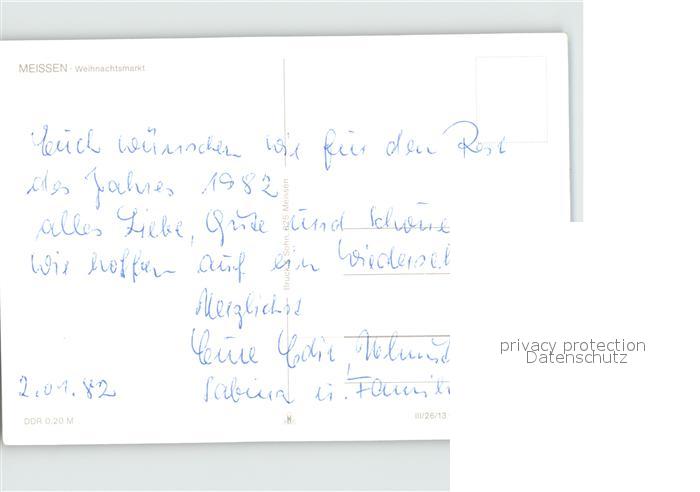 MEISSEN · Weihnachtsmarkt
Euch wünschen wir für den Rest
des Jahres 1982
alles Liebe, Gute und Schöne
wir hoffen auf ein Wiederseh
Herzlichst
Eure Edit, Helmut
Sabina u. Famili
2.01.82
Bruck & Sohn, 825 Meissen
DDR 0,20 M
III/26/13
privacy protection
Datenschutz